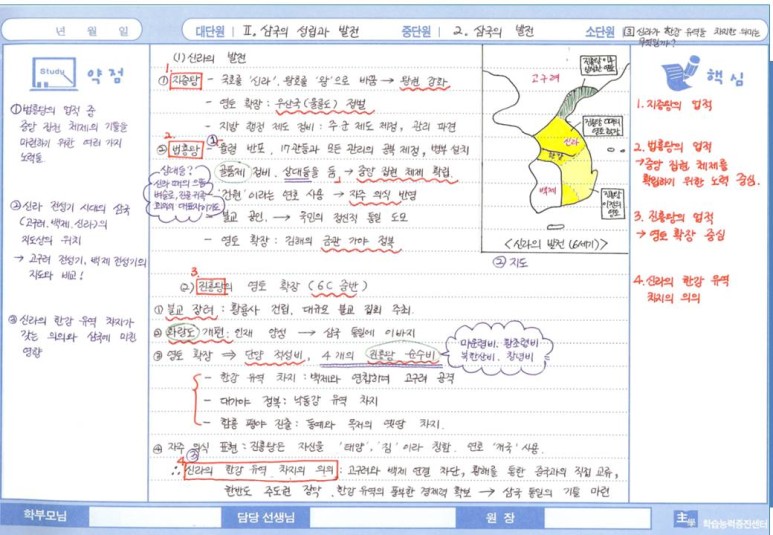 년 월 일
대단원 Ⅱ. 삼국의 성립과 발전
중단원 2. 삼국의 발전
소단원 3 신라가 한강 유역을 차지한 의미는
무엇일까?
Study 약점
① 법흥왕의 업적 중
중앙 집권 체제의 기틀을
마련하기 위한 여러 가지
노력들.
② 신라 전성기 시대의 삼국
(고구려, 백제, 신라)의
지도상의 위치
→ 고구려 전성기, 백제 전성기의
지도와 비교!
③ 신라의 한강 유역 차지가
갖는 의의와 삼국에 미친
영향
(1) 신라의 발전
1.
① 지증왕 - 국호를 '신라', 왕호를 '왕'으로 바꿈 → 왕권 강화
- 영토 확장 : 우산국(울릉도) 정벌
- 지방 행정 제도 정비 : 주·군 제도 제정, 관리 파견
2.
② 법흥왕 ① 율령 반포, 17관등과 모든 관리의 공복 제정, 병부 설치
골품제 정비, 상대등을 둠, → 중앙 집권 체제 확립.
상대등?
신라 때의
벼슬로, 진골 귀족
회의의 대표자이기도
- '건원'이라는 연호 사용 → 자주 의식 반영
- 불교 공인, → 국민의 정신적 통일 도모
- 영토 확장 : 김해의 금관 가야 정복
고구려
신라
가야
백제
진흥왕 때의
영토 확장
진흥왕
이전의
영토
<신라의 발전 (6세기)>
② 지도
3.
(2) 진흥왕의 영토 확장 (6C 중반)
① 불교 장려 : 황룡사 건립, 대규모 불교 집회 주최.
② 화랑도 개편 : 인재 양성 → 삼국 통일에 이바지
③ 영토 확장 ⇒ 단양 적성비, 4개의 진흥왕 순수비
마운령비, 황초령비
북한산비, 창녕비
- 한강 유역 차지 : 백제와 연합하여 고구려 공격
- 대가야 정복 : 낙동강 유역 차지
- 함흥 평야 진출 : 동예와 옥저의 옛땅 차지.
④ 자주 의식 표현 : 진흥왕은 자신을 '태왕', '짐'이라 칭함. 연호 '개국' 사용.
4. ③
∴ 신라의 한강 유역 차지의 의의 : 고구려와 백제 연결 차단, 황해를 통한 중국과의 직접 교류,
한반도 주도권 장악, 한강 유역의 풍부한 경제력 확보 → 삼국 통일의 기틀 마련
핵심
1. 지증왕의 업적
2. 법흥왕의 업적
→ 중앙 집권 체제를
확립하기 위한 노력 중심.
3. 진흥왕의 업적
→ 영토 확장 중심
4. 신라의 한강 유역
차지의 의의
학부모님
담당 선생님
원 장
主루 학습능력증진센터